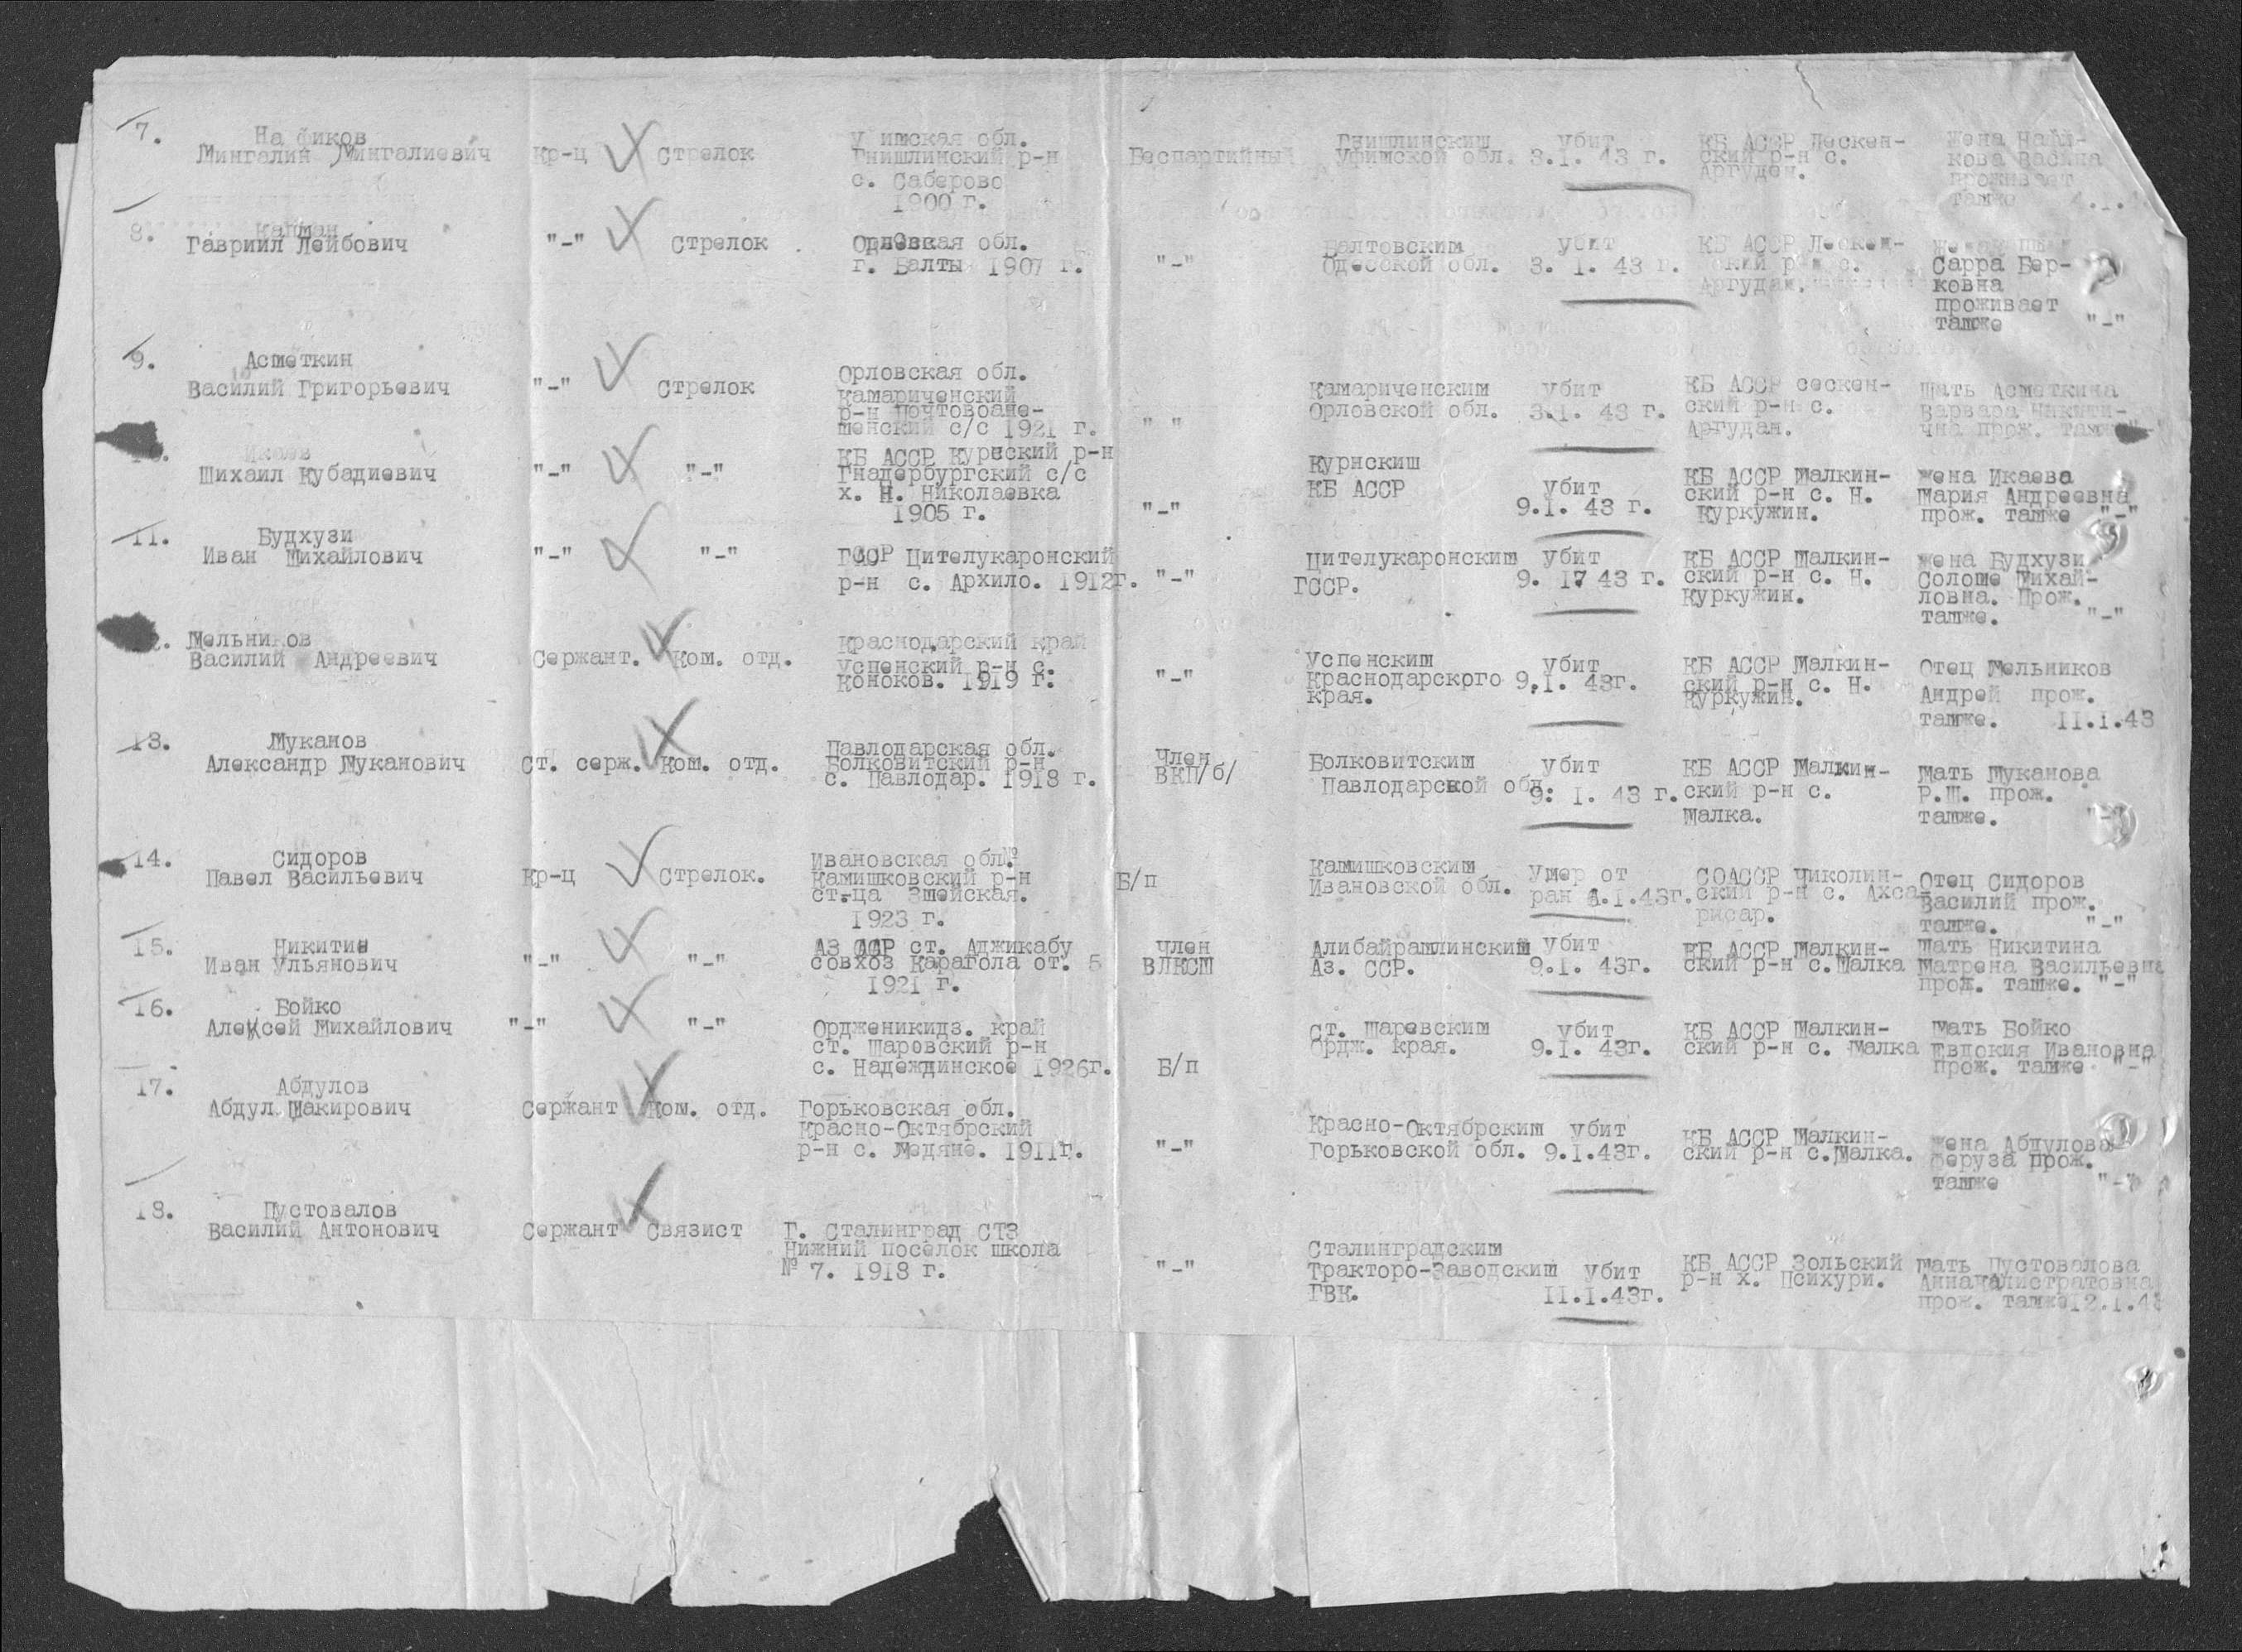 7. На фиков
Мингалин Мингалиевич Кр-ц Стрелок
У имская обл.
Гнишлинский р-н
с. Саберово
1900 г.
Беспартийный
Гнишлинскиш
Уфишской обл.
убит
3.1. 43 г.
КБ АССР Лескен-
ский р-н с.
Аргудан.
Жена
кова
проживает
также
8.
Гавриил Лейбович "-" Стрелок
обл.
г. Балты 1907 г.
"-"
Балтовским
Одесской обл.
убит
3. 1. 43 г.
КБ АССР Лескен-
ский р-н с.
Аргудан.
Сарра Бер-
ковна
проживает
также "-"
9. Асметкин
Василий Григорьевич "-" Стрелок
Орловская обл.
Камариченский
р-н
шенский с/с 1921 г.
" "
Камариченским
Орловской обл.
убит
3.1. 43 г.
КБ АССР сескен-
ский р-н с.
Аргудан.
Мать Асметкина
Варвара Никити-
чна прож.
Икаев
Шихаил Кубадиевич "-" "-"
КБ АССР Курнский р-н
Гнадербургский с/с
х. Н. Николаевка
1905 г.
"-"
Курнскиш
КБ АССР
убит
9.1. 43 г.
КБ АССР Малкин-
ский р-н с. Н.
Куркужин.
Жена Икаева
Мария Андреевна
прож. также "-"
11. Будхузи
Иван Шихайлович "-" "-"
ГССР Цителукаронский
р-н с. Архило. 1912г.
"-"
Цителукаронскиш
ГССР.
убит
9. 17 43 г.
КБ АССР Малкин-
ский р-н с. Н.
Куркужин.
Жена Будхузи
Солоше Михай-
ловна. Прож.
также. "-"
Мельников
Василий Андреевич Сержант. Ком. отд.
Краснодарский край
Успенский р-н с.
Коноков. 1919 г.
"-"
Успенскиш
Краснодарского
края.
убит
9.1. 43г.
КБ АССР Малкин-
ский р-н с. Н.
Куркужин.
Отец Мельников
Андрей прож.
также. 11.1.43
13. Муканов
Александр Муканович Ст. серж. Ком. отд.
Павлодарская обл.
Болковитский р-н
с. Павлодар. 1918 г.
Член
ВКП/б/
Болковитскиш
Павлодарской обл.
убит
9. 1. 43 г.
КБ АССР Малкин-
ский р-н с.
Малка.
Мать Муканова
Р.Ш. прож.
также. "-"
14. Сидоров
Павел Васильевич Кр-ц Стрелок.
Ивановская обл.
Камишковский р-н
ст-ца Змейская.
1923 г.
Б/п
Камишковскиш
Ивановской обл.
Умер от
ран 1.43г.
СОАССР Чиколин-
ский р-н с. Ахса-
рисар.
Отец Сидоров
Василий прож.
также. "-"
15. Никитин
Иван Ульянович "-" "-"
АЗ ССР ст. Аджикабу
совхоз Карагола от. 5
1921 г.
член
ВЛКСМ
Алибайрамлинский
Аз. ССР.
убит
9.1. 43г.
КБ АССР Малкин-
ский р-н с.Малка
Мать Никитина
Матрена Васильевна
прож. также. "-"
16. Бойко
Алексей Михайлович "-" "-"
Ордженикидз. край
ст. Шаровский р-н
с. Надеждинское 1926г.
Б/п
ст. Шаревским
Ордж. края.
убит
9.1. 43г.
КБ АССР Малкин-
ский р-н с. Малка
Мать Бойко
Евдокия Ивановна
прож. также "-"
17. Абдулов
Абдул Шакирович Сержант Ком. отд.
Горьковская обл.
Красно-Октябрский
р-н с. Медяне. 1911г.
"-"
Красно-Октябрскиш
Горьковской обл.
убит
9.1.43г.
КБ АССР Малкин-
ский р-н с.Малка.
Жена Абдулова
Феруза прож.
также "-"
18. Пустовалов
Василий Антонович Сержант Связист
Г. Сталинград СТЗ
Нижний поселок школа
№ 7. 1918 г.
"-"
Сталинградским
Тракторо-Заводскиш
ГВК.
убит
11.1.43г.
КБ АССР Зольский
р-н х. Психури.
Мать Пустовалова
прож. также 12.1.43